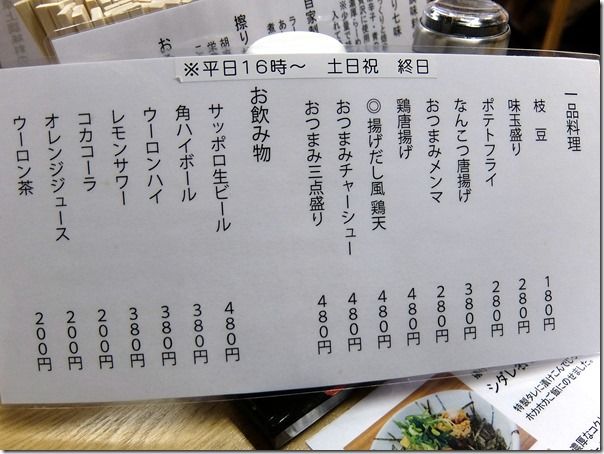 ※平日16時～　土日祝　終日
一品料理
枝豆　180円
味玉盛り　280円
ポテトフライ　280円
なんこつ唐揚げ　380円
おつまみメンマ　280円
鶏唐揚げ　480円
◎揚げだし風鶏天　480円
おつまみチャーシュー　480円
おつまみ三点盛り　480円
お飲み物
サッポロ生ビール　480円
角ハイボール　380円
ウーロンハイ　380円
レモンサワー　380円
コカコーラ　200円
オレンジジュース　200円
ウーロン茶　200円
特製タレに漬けこんでじっ
ホカホカご飯にのせました。